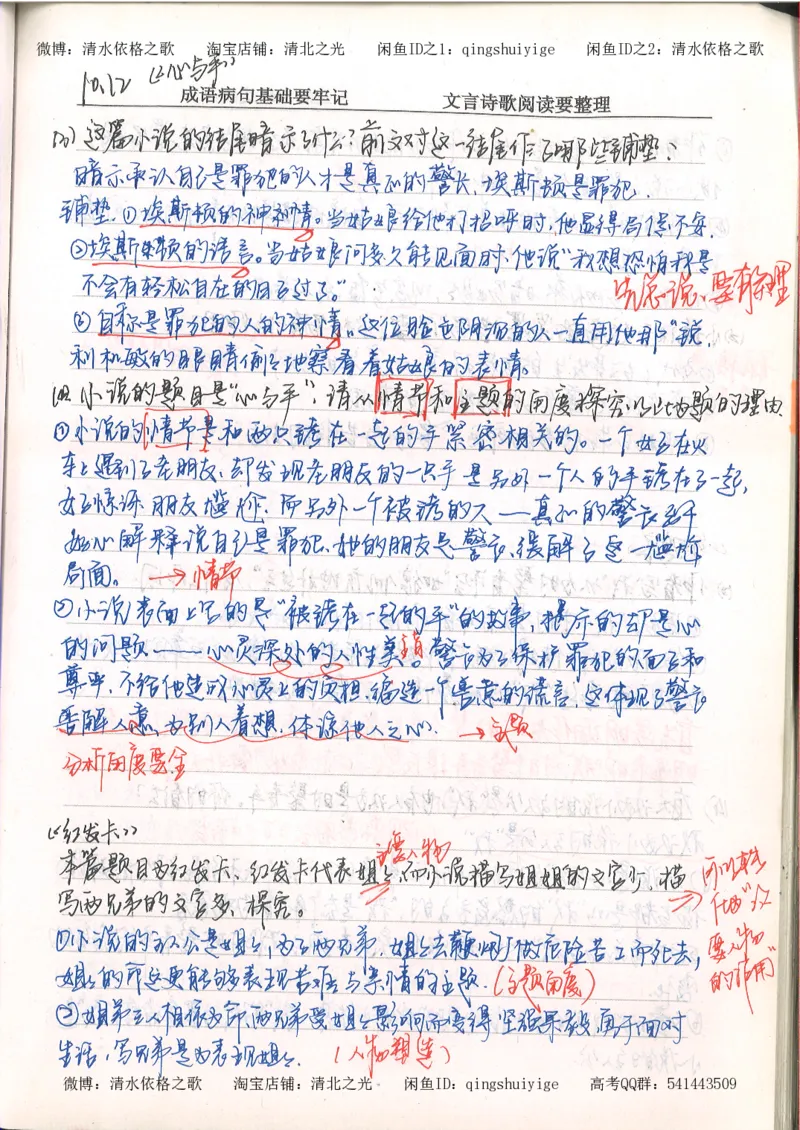 微博：清水依格之歌 淘宝店铺：清北之光 闲鱼ID之1：qingshuiyige 闲鱼ID之2：清水依格之歌
10.12 《心与手》
成语病句基础要牢记 文言诗歌阅读要整理
这篇小说的结尾暗示了什么？前文对这一结尾作了哪些铺垫？
暗示承认自己是罪犯的人才是真正的警长，埃斯顿是罪犯．
铺垫．①埃斯顿的神情。当姑娘给他打招呼时，他显得局促不安．
②埃斯顿的语言。当姑娘问多久能见面时，他说“我想恐怕我是
不会有轻松自在的日子过了。”
先总说，要有条理
③自称是罪犯的人的神情。这位脸色阴沉的人一直用他那“锐
利机敏的眼睛偷偷地察看着姑娘的表情。
四 小说的题目是“心与手”，请从情节和主题的角度探究以此为题的理由
①小说的情节是和两只铐在一起的手紧密相关的。一个女子在火
车上遇到了老朋友，却发现老朋友的一只手是与另外一个人的手铐在了一起，
女子惊讶 朋友尴尬，而另外一个被铐的人——真正的警长
解释说自己是罪犯，她的朋友是警长，缓解了这一尴尬
局面。 →情节
②小说表面上写的是“被铐在一起的手”的故事，揭示的却是心
的问题——心灵深处的人性美。警长为了保护罪犯的面子和
尊严，不给他造成心灵上的负担，编造一个善意的谎言，这体现了警长
善解人意，为别人着想，体谅他人之心． →主题
分析角度要全
《红发卡》
主要人物
本篇题目为红发卡、红发卡代表姐姐，而小说描写姐姐的文字少，描
写两兄弟的文字多，探究。
可以转化为“次要人物的作用”
①小说的主人公是姐姐，为了两兄弟，姐姐去鞭炮厂做危险苦工而死去，
姐姐的命运更能够表现苦难与亲情的主题．（主题角度）
②姐弟三人相依为命，两兄弟受姐姐影响而变得坚强果敢，勇于面对
生活，写兄弟是为表现姐姐． （人物塑造）
微博：清水依格之歌 淘宝店铺：清北之光 闲鱼ID：qingshuiyige 高考QQ群：541443509